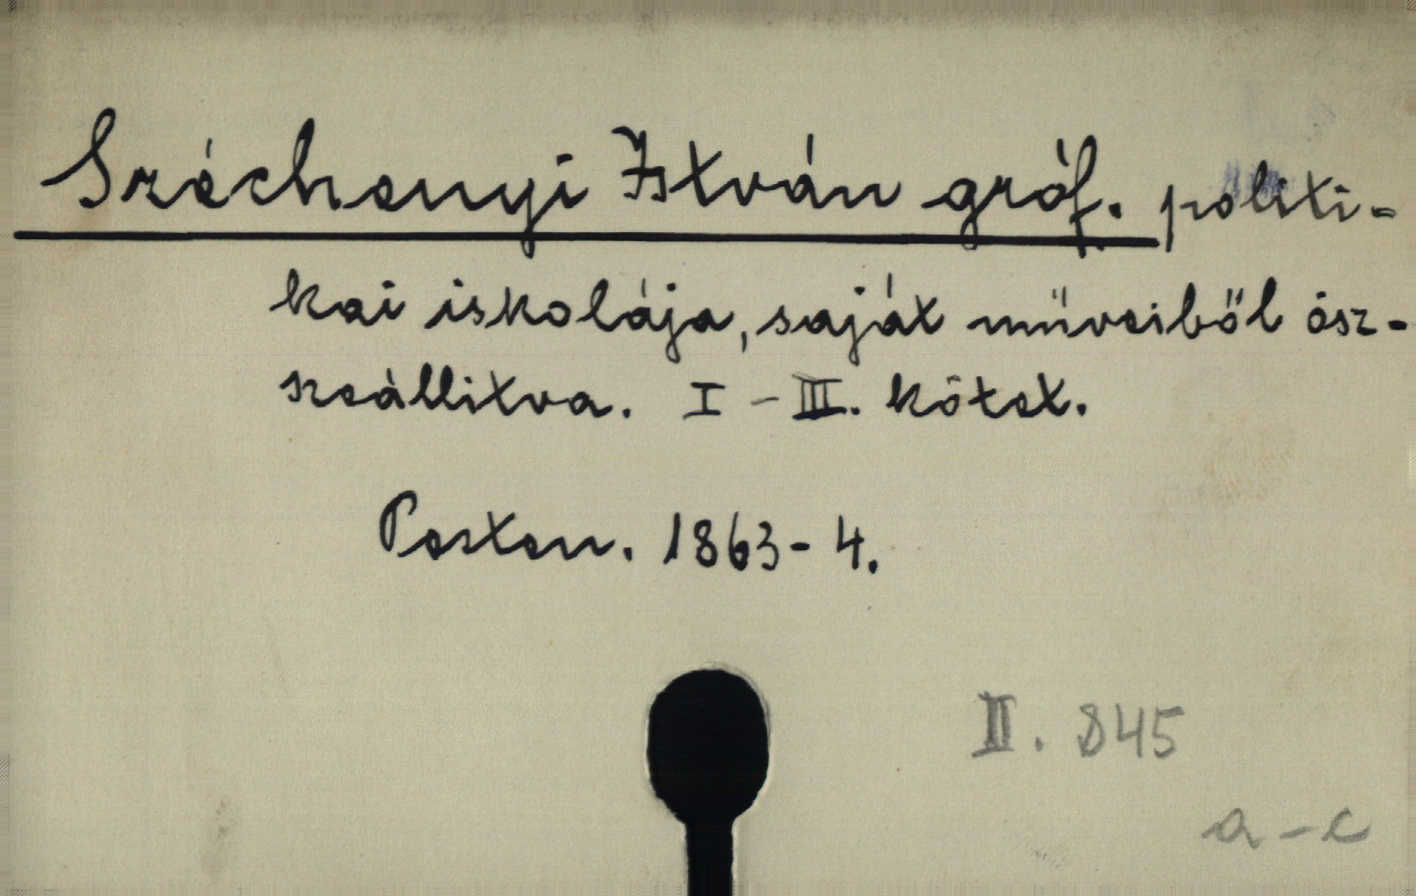 Széchenyi István gróf. politi-
kai iskolája, saját műveiből ösz-
szeállitva. I - III. kötet.
Pesten. 1863-4.
II. 845
a-c